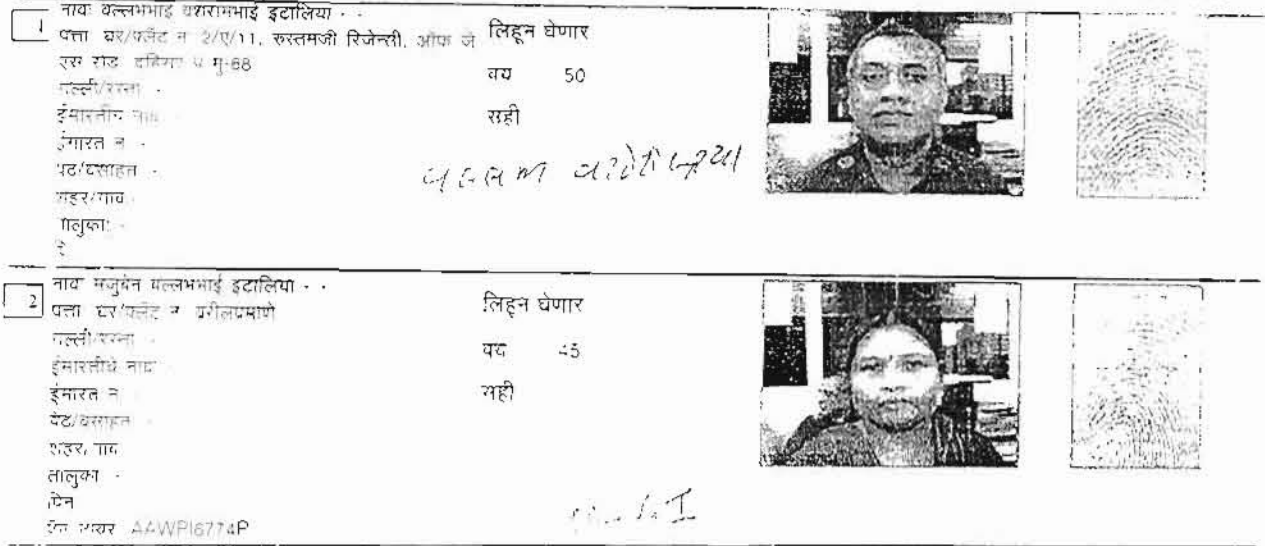 1
नावः वल्लभभाई वशरामभाई इटालिया - -
पत्ता घर/फ्लॅट न 2/ए/11, रुस्तमजी रिजेन्सी, ऑफ जे
एस रोड दहिसर प मु-68
गल्ली/रस्ता -
ईमारतीचे नाव -
ईमारत न -
पेठ/वसाहत -
शहर/गाव
तालुका: -
लिहून घेणार
वय 50
सही
2
नाव मजुबेन वल्लभभाई इटालिया - -
पत्ता घर/फ्लॅट न वरीलप्रमाणे
गल्ली/रस्ता -
ईमारतीचे नाव
ईमारत न
पेठ/वसाहत -
शहर/गाव
तालुका -
पिन
पॅन नम्बर AAWPI6774P
लिहून घेणार
वय 45
सही